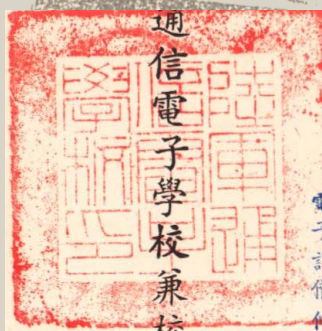 通信電子學校兼校
陸軍通
信電子
學校印